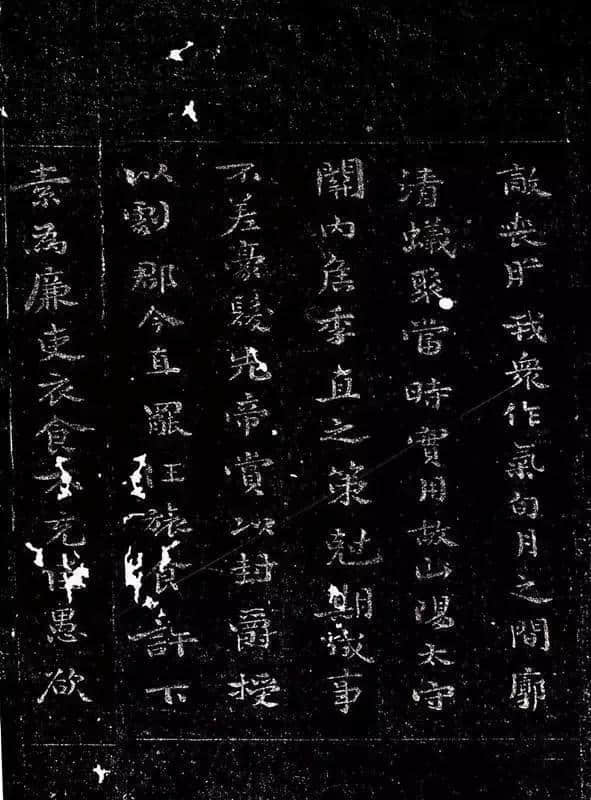 敵喪我衆作氣旬月之間廓
清蟻聚當時實用故山陽太守
關内侯季直之策尅期成事
不差豪髮先帝賞以封爵授
以劇郡今直罷任旅食許下
素為廉吏衣食不充臣愚欲